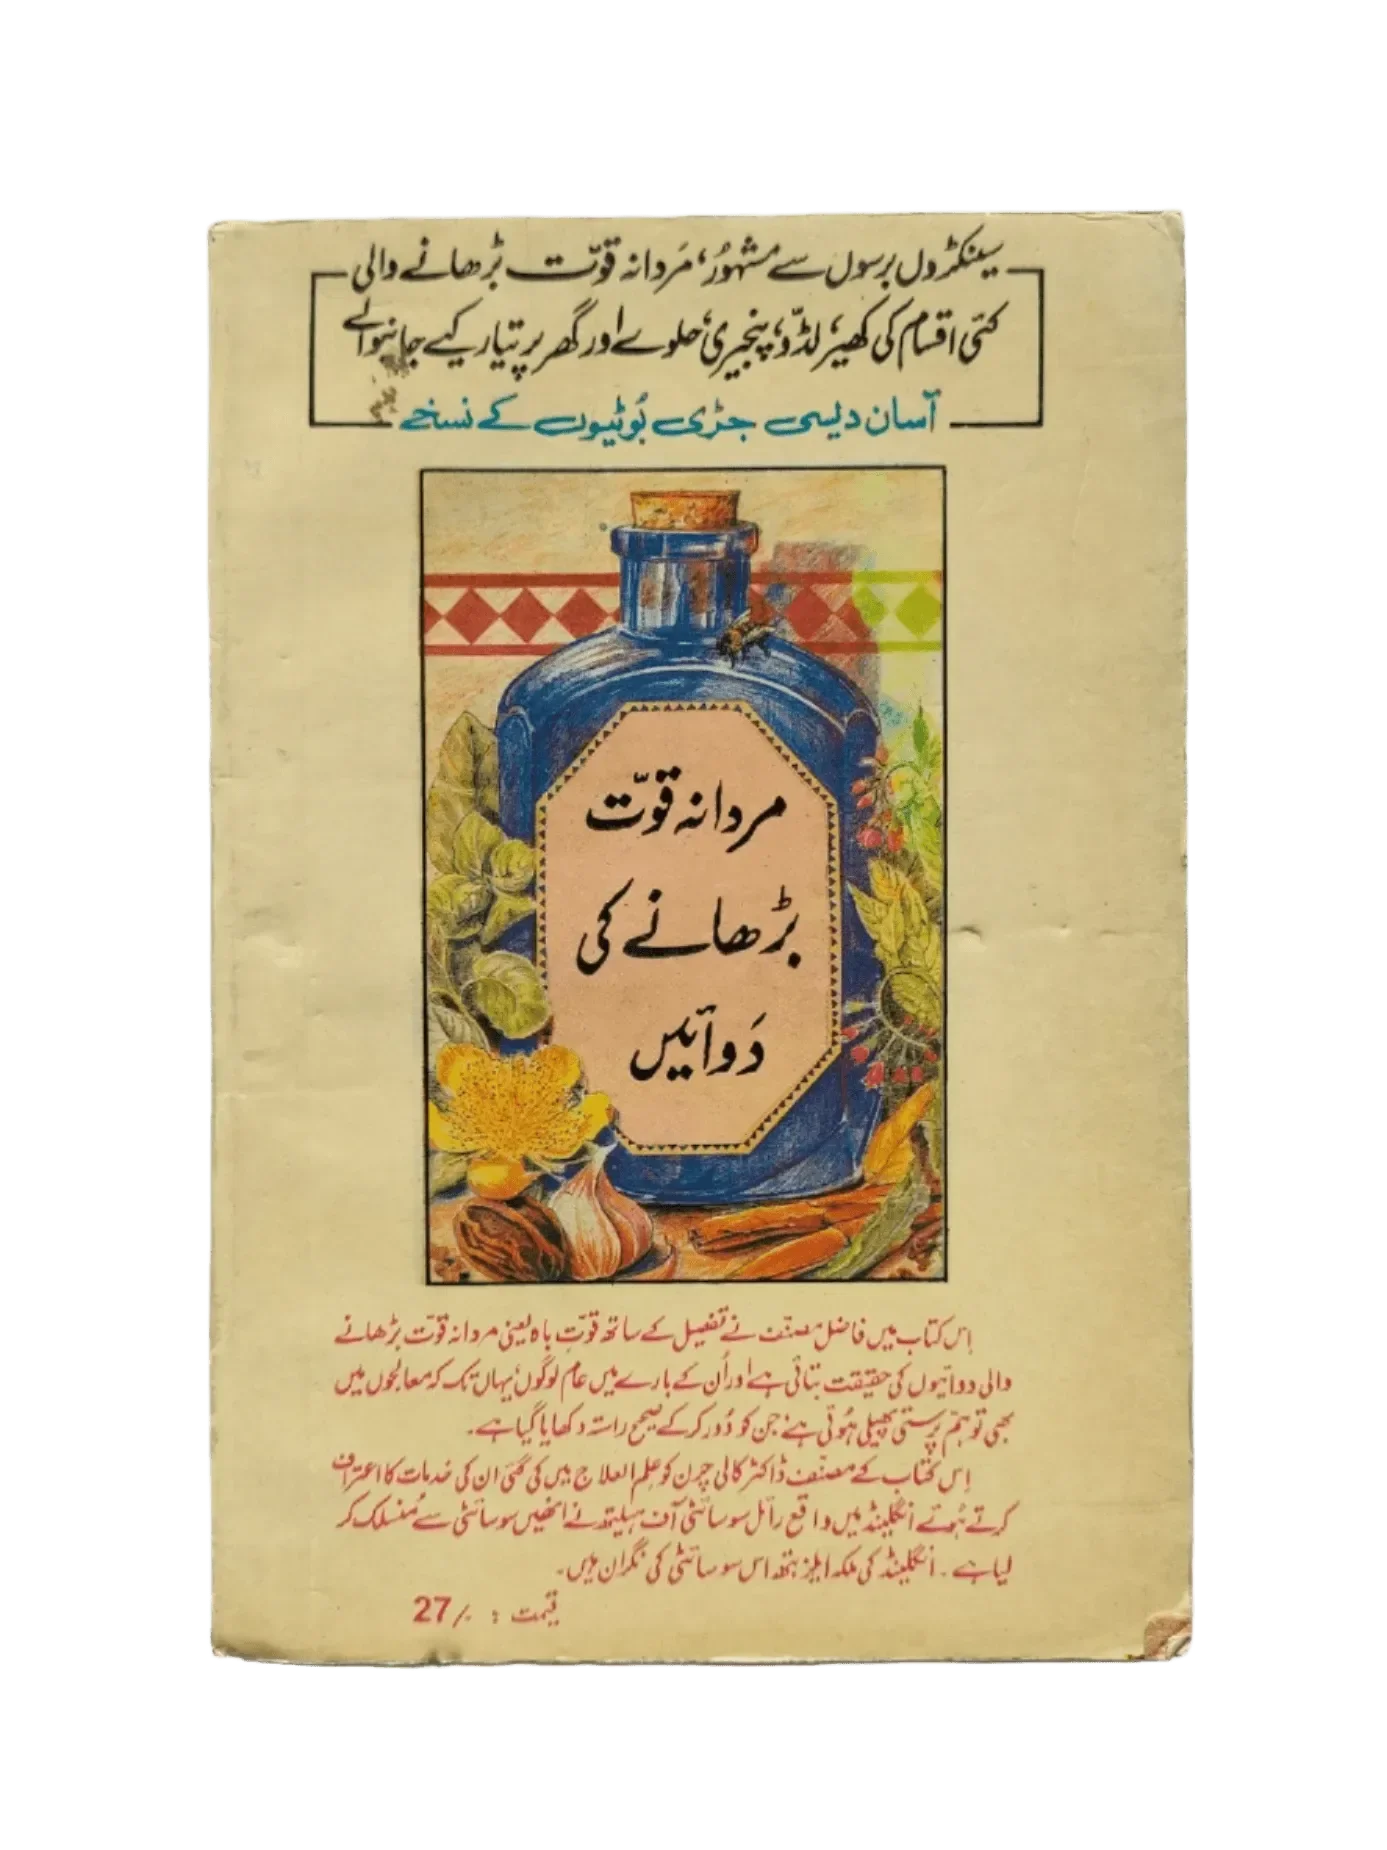 سینکڑوں برسوں سے مشہُور، مَردانہ قوّت بڑھانے والی
کئی اقسام کی کھیر، لڈّو، پنجیری، حلوے اور گھر پر تیار کیے جانیوالے
آسان دیسی جڑی بُوٹیوں کے نسخے
مردانہ قوّت
بڑھانے کی
دَوائیں
اِس کتاب میں فاضل مصنّف نے تفصیل کے ساتھ قوّتِ باہ یعنی مردانہ قوّت بڑھانے
والی دوائیوں کی حقیقت بتائی ہے اور اُن کے بارے میں عام لوگوں، یہاں تک کہ معالجوں میں
بھی توہّم پرستی پھیلی ہُوئی ہے، جن کو دُور کر کے صحیح راستہ دکھایا گیا ہے۔
اِس کتاب کے مصنّف ڈاکٹر کالی چرن کو علِم العلاج میں کی گئی ان کی خدمات کا اعتراف
کرتے ہُوئے انگلینڈ میں واقع رائل سوسائٹی آف ہیلتھ نے انھیں سوسائٹی سے مُنسلک کر
لیا ہے۔ انگلینڈ کی ملکہ ایلزبتھ اس سوسائٹی کی نگران ہیں۔
قیمت : 27/-